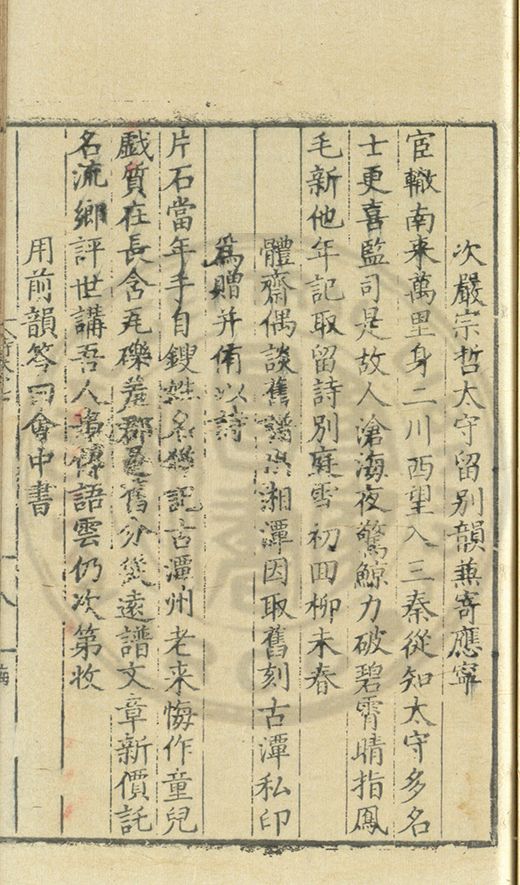 次嚴宗哲太守留別韻兼寄應寧
宦轍南来萬里身二川西望入三秦從知太守多名
士更喜監司是故人滄海夜驚鯨力破碧霄晴指鳳
毛新他年記取留詩別庭雪初回柳未春
體齋偶談舊譜出湘潭因取舊刻古潭私印
為贈并侑以詩
片石當年手自鎪姓名猶記古潭州老来悔作童兒
戯質在長含瓦礫羞郡邑舊分從遠譜文章新價託
名流鄉評世講吾人事傳語雲仍次第收
用前韻答曰會中書